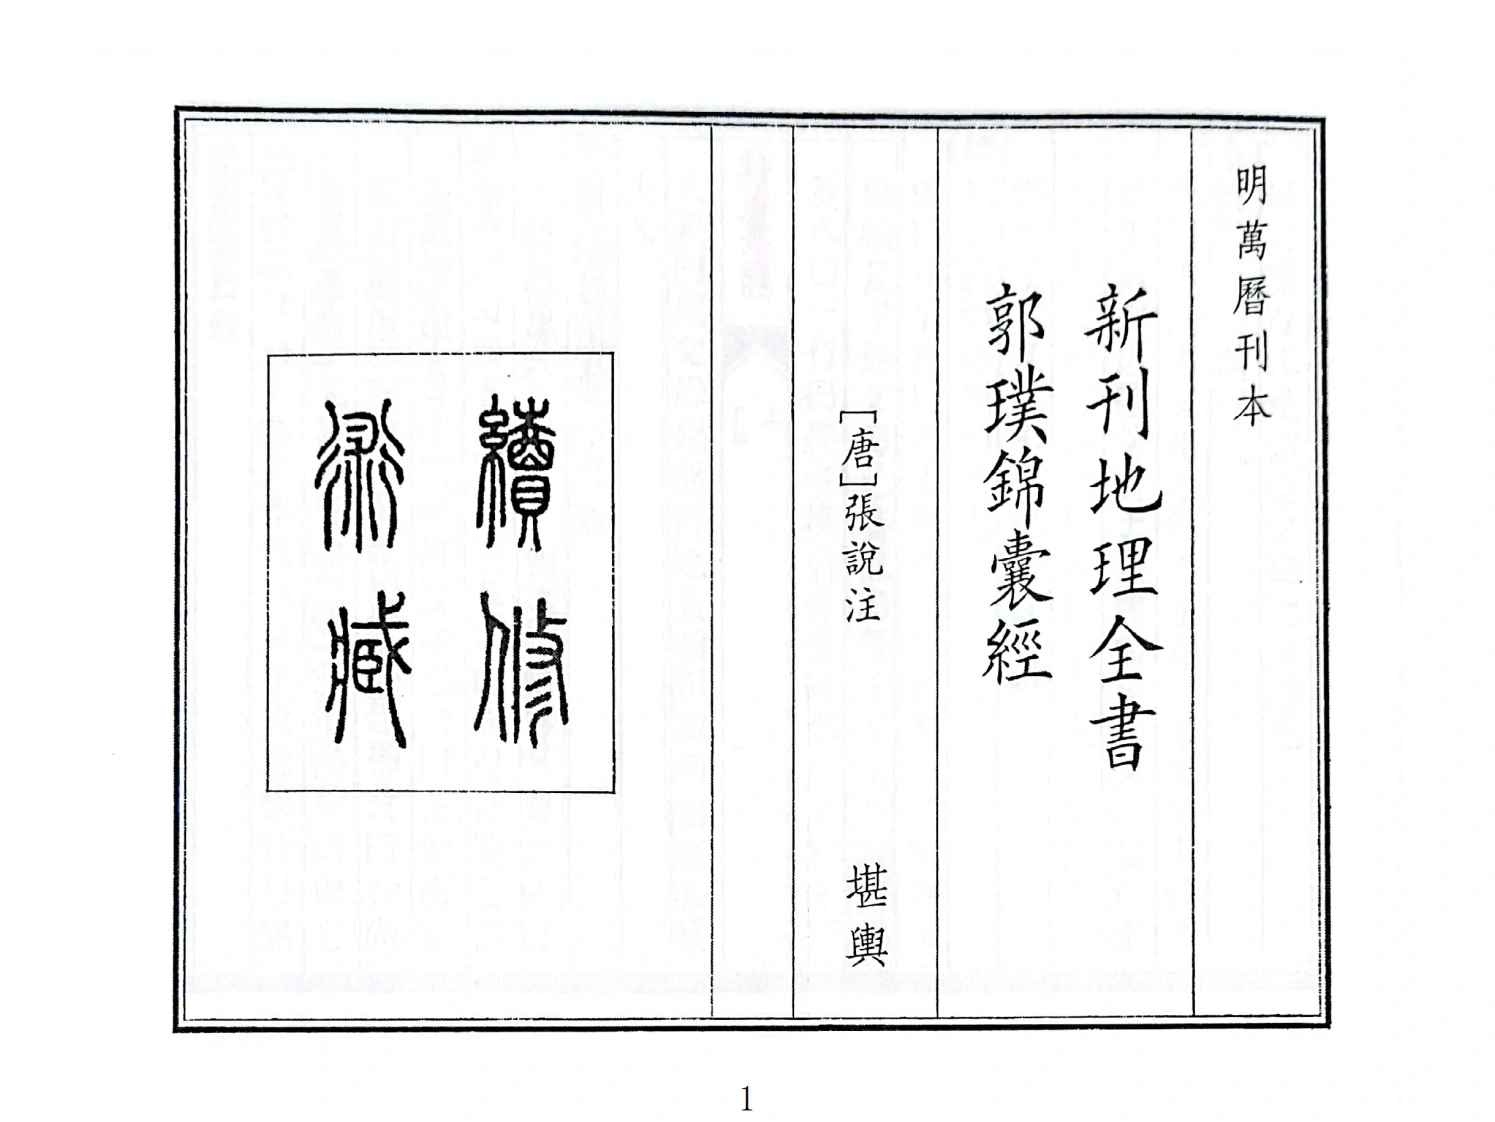 明萬曆刊本
新刊地理全書
郭璞錦囊經
[唐]張說注
堪輿
續修
術藏
1